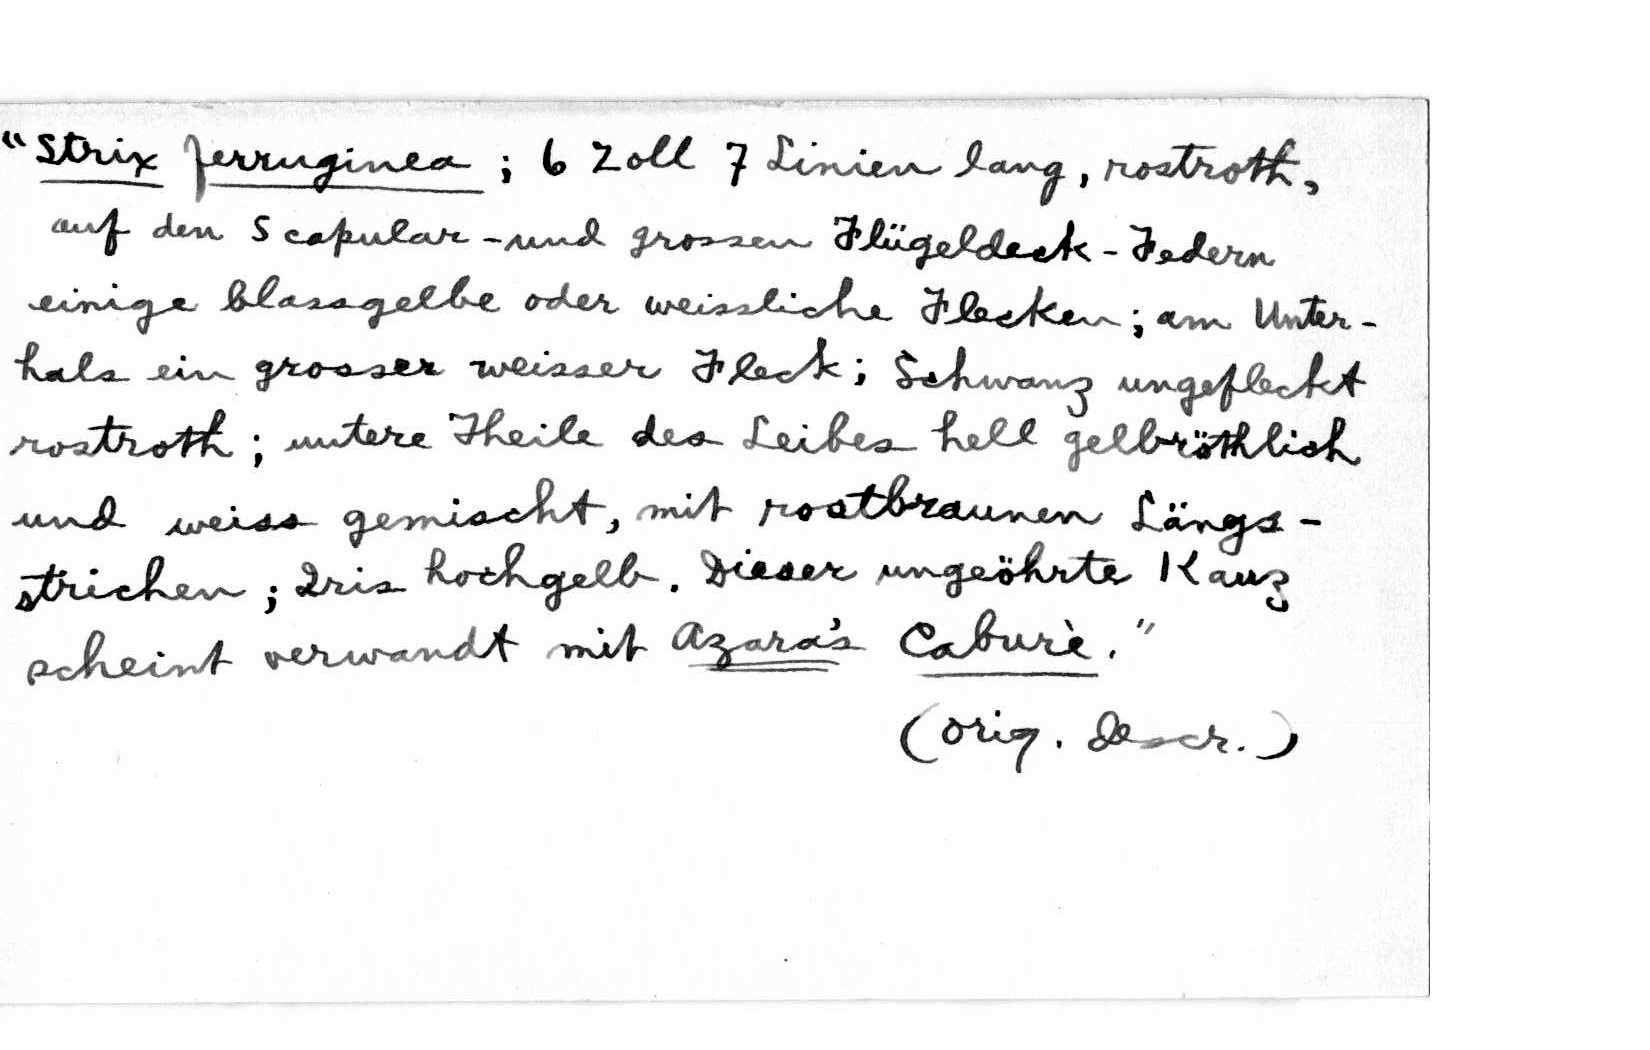 "Strix ferruginea; 6 Zoll 7 Linien lang, rostroth,
auf den Scapular-und grossen Flügeldeck-Federn
einige blassgelbe oder weissliche Flecken; am Unter-
hals ein grosser weisser Fleck; Schwanz ungefleckt
rostroth; untere Theile des Leibes hell gelbröthlich
und weiss gemischt, mit rostbraunen Längs-
strichen; Iris hochgelb. Dieser ungeöhrte Kauz
scheint verwandt mit Azara's Caburè."
(orig. descr.)